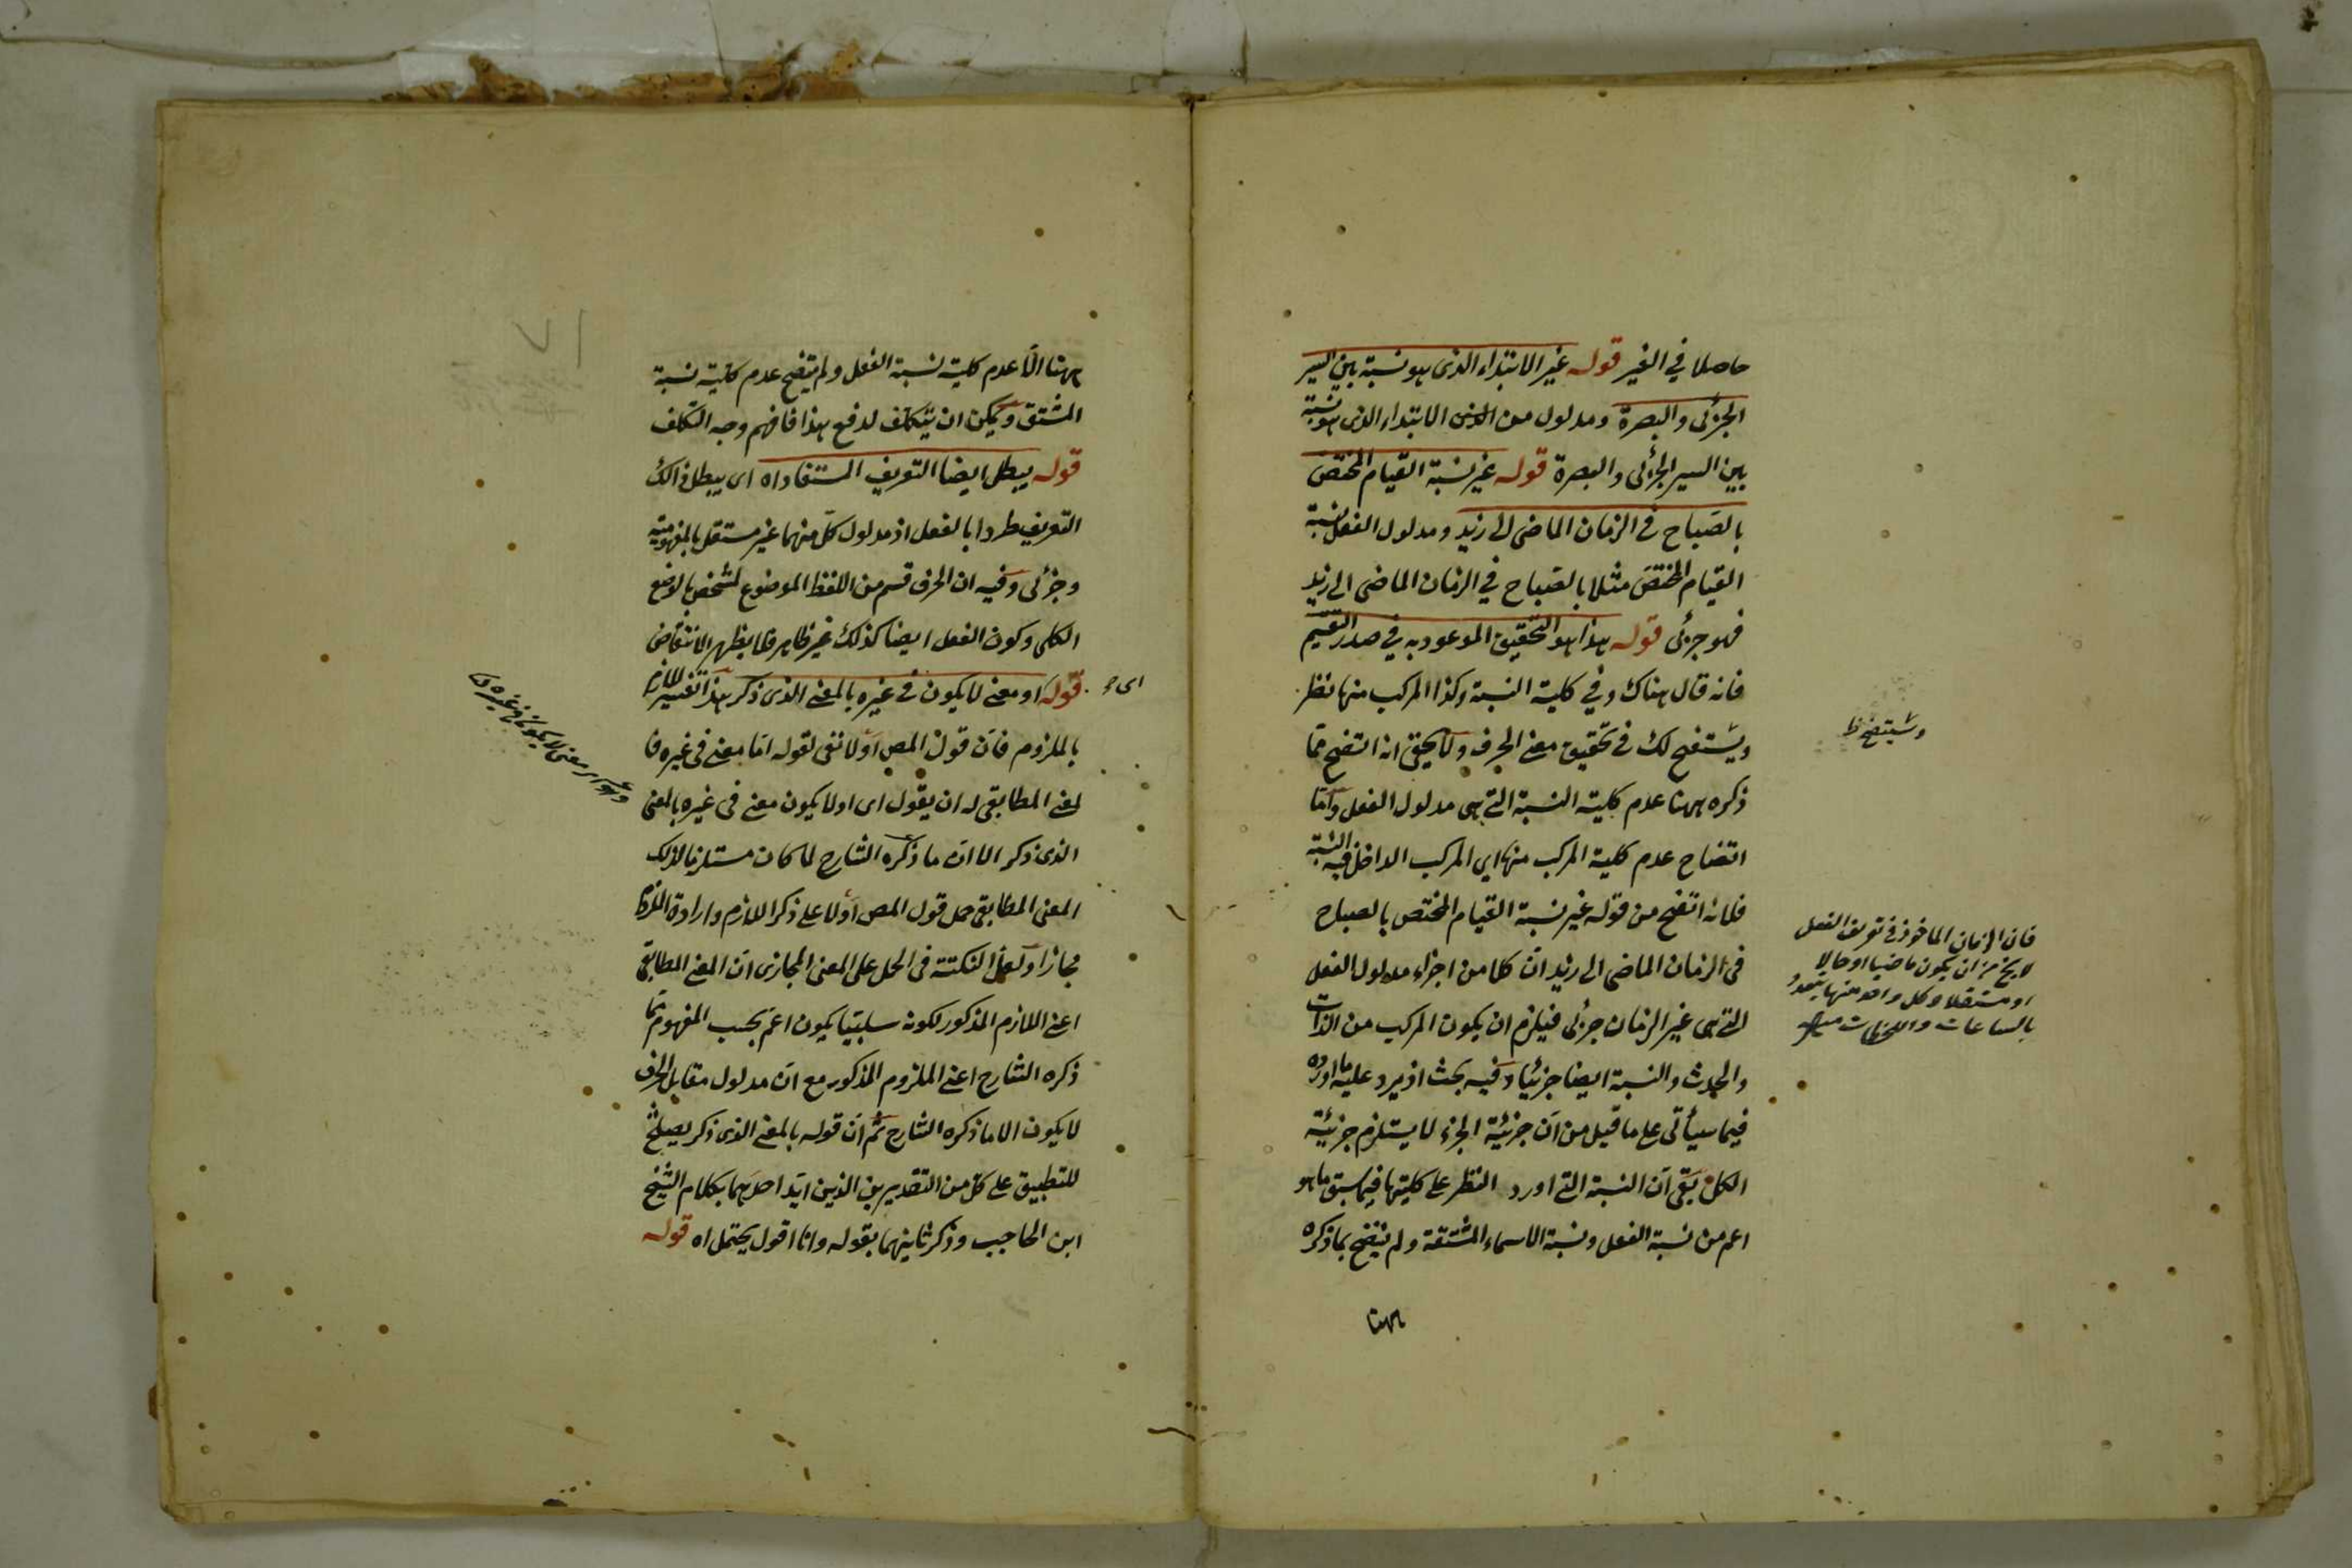 حاصلا في الغير قوله غير الابتداء الذى هو نسبة بين السير
الجزئى والبصرة ومدلول من الابتداء الذى هو نسبة
بين السير الجزئى والبصرة قوله غير نسبة القيام المختص
بالصباح فى الزمان الماضى الى زيد ومدلول الفعل نسبة
القيام المختص مثلا بالصباح في الزمان الماضى الى زيد
فهو جزئى قوله هذا هو التحقيق الموعود به في صدر التقسيم
فانه قال هناك وفي كلية النسبة وكذا المركب منها نظر
ويستضح لك فى تحقيق معنى الحرف ولا يخفى انه اتضح مما
ذكره ههنا عدم كلية النسبة التى هى مدلول الفعل واما
اتضاح عدم كلية المركب منها اى المركب الداخل فيه النسبة
فلانه اتضح من قوله غير نسبة القيام المختص بالصباح
فى الزمان الماضى الى زيد ان كلا من اجزاء مدلول الفعل
التى هى غير الزمان جزئى فيلزم ان يكون المركب من الذات
والحدث والنسبة ايضا جزئيا وفيه بحث اذ يرد عليه ما اورده
فيما سيأتى على ما قيل من ان جزئية الجزء لا يستلزم جزئية
الكل بقى ان النسبة التى اورد النظر على كليتها فيما سبق ما هو
اعم من نسبة الفعل ونسبة الاسماء المشتقة ولم يتضح بما ذكره
ههنا
وسيتضح ظ
فان الزمان الماخوذ فى تعريف الفعل
لا يخ من ان يكون ماضيا او حالا
او مستقبلا وكل واحد منها يتعدد
بالساعات واللحظات
ههنا الا عدم كلية نسبة الفعل ولم يتضح عدم كلية نسبة
المشتق ويمكن ان يتكلف لدفع هذا فافهم وجه التكلف
قوله يبطل ايضا التعريف المستفاد اه اى يبطل ذالك
التعريف طردا بالفعل اذ مدلول كل منهما غير مستقل بالمفهومية
وجزئى وفيه ان الحرف قسم من اللفظ الموضوع لمشخص بالوضع
الكلى وكون الفعل ايضا كذلك غير ظاهر فلا يظهر الانتقاض
قوله او معنى لا يكون فى غيره بالمعنى الذى ذكر هذا تفسير اللازم
بالملزوم فان قول المص اولا نفى لقوله اما معنى فى غيره فا
لمعنى المطابقى له ان يقول اى اولا يكون معنى فى غيره بالمعنى
الذى ذكر الا ان ما ذكره الشارح لما كان مستلزما لذلك
المعنى المطابقى حمل قول المص اولا على ذكر اللازم وارادة الملزوم
مجازا ولعل النكتة فى الحمل على المعنى المجازى ان المعنى المطابقى
اعنى اللازم المذكور لكونه سلبيا يكون اعم بحسب المفهوم مما
ذكره الشارح اعنى الملزوم المذكور مع ان مدلول مقابل الحرف
لا يكون الا ما ذكره الشارح ثم ان قوله بالمعنى الذى ذكر يصلح
للتطبيق على كل من التقديرين الذين ايد احدهما بكلام الشيخ
ابن الحاجب وذكر ثانيهما بقوله وانا اقول يحتمل اه قوله